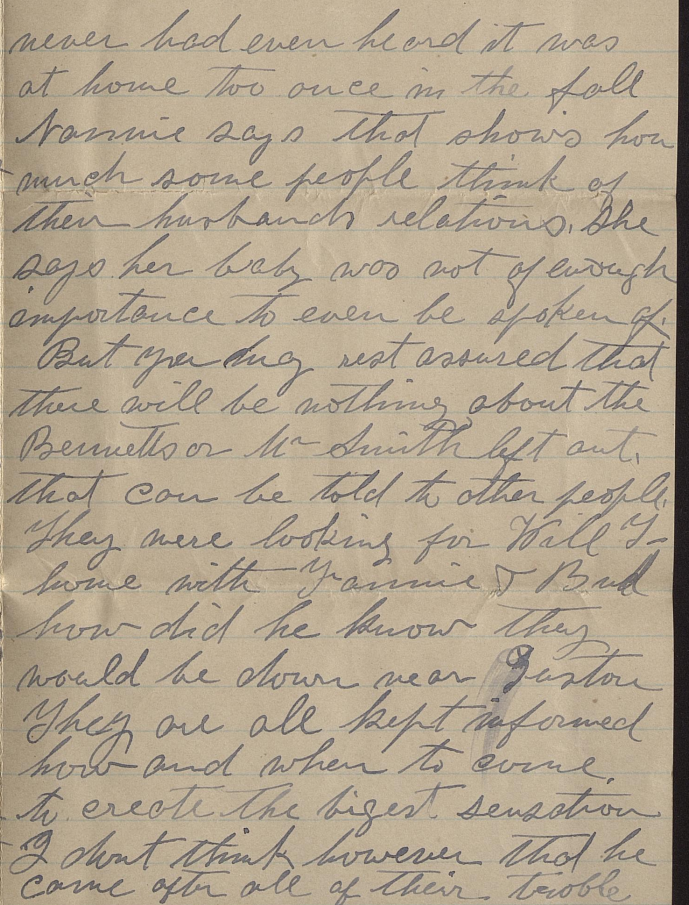 never had even heard it was
at home too once in the fall
Nannie says that shows how
much some people think of
their husbands relations. She
says her baby was not of enough
importance to even be spoken of.
But you may rest assured that
there will be nothing about the
Bennetts or Mr Smith left out,
that can be told to other people.
They were looking for Will T
home with Fannie & Bud
how did he know they
would be down near
They are all kept informed
how and when to come,
to create the bigest sensation
I dont think however that he
came after all of their trobble